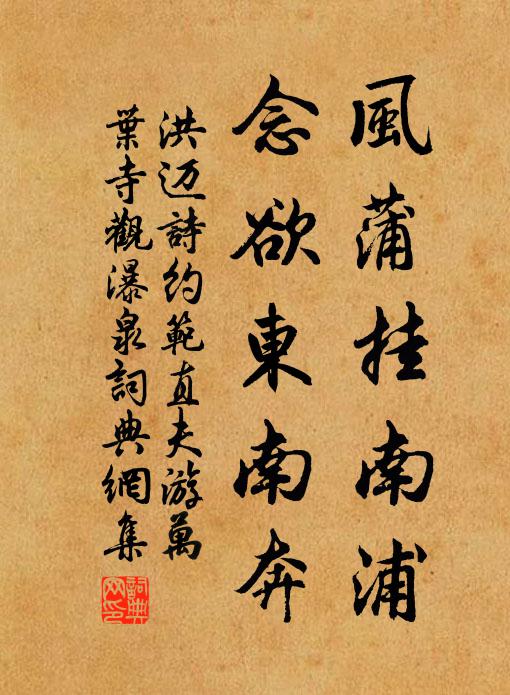 風蒲挂南浦
念欲東南奔
洪迈詩約範直夫游萬
葉寺觀瀑泉詞典網集
詞典網印